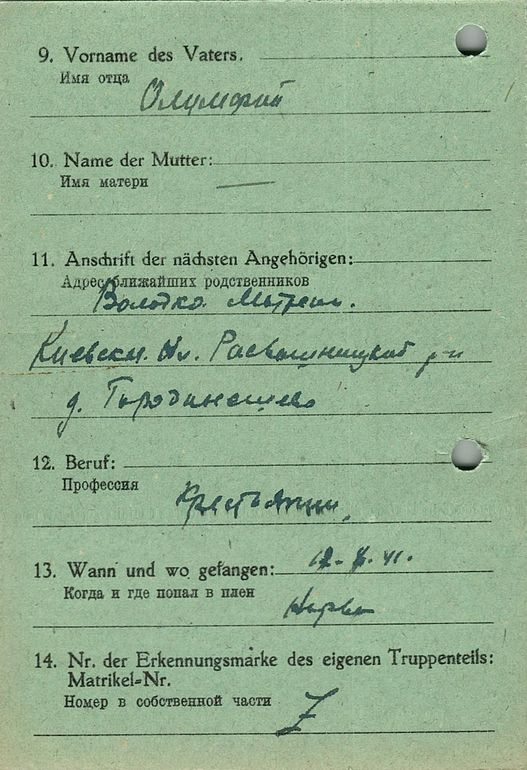 9. Vorname des Vaters.
Имя отца
10. Name der Mutter:
Имя матери
—
11. Anschrift der nächsten Angehörigen:
Адрес ближайших родственников
Волошко
Киевск.
р-н
д.
12. Beruf:
Профессия
Крестьянин
13. Wann und wo gefangen:
41.
Когда и где попал в плен
Нарва
14. Nr. der Erkennungsmarke des eigenen Truppenteils:
Matrikel-Nr.
Номер в собственной части